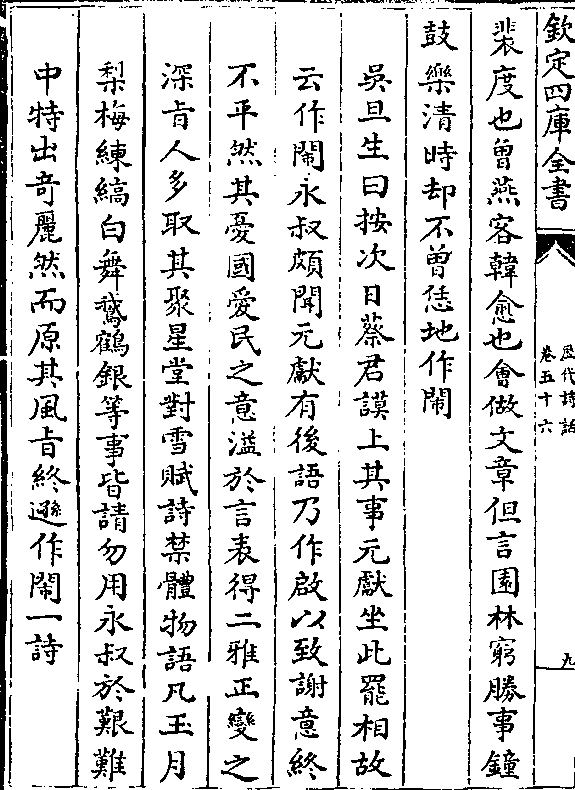 欽定四庫全書
歴代詩話
卷五十六
九
裴度也曾燕客韓愈也會做文章但言園林窮勝事鐘
鼓樂清時却不曾恁地作閙
吳旦生曰按次日蔡君謨上其事元獻坐此罷相故
云作閙永叔頗聞元獻有後語乃作啟以致謝意終
不平然其憂國愛民之意溢於言表得二雅正變之
深旨人多取其聚星堂對雪賦詩禁體物語凡玉月
梨梅練縞白舞鵞鶴銀等事皆請勿用永叔於艱難
中特出奇麗然而原其風旨終遜作閙一詩